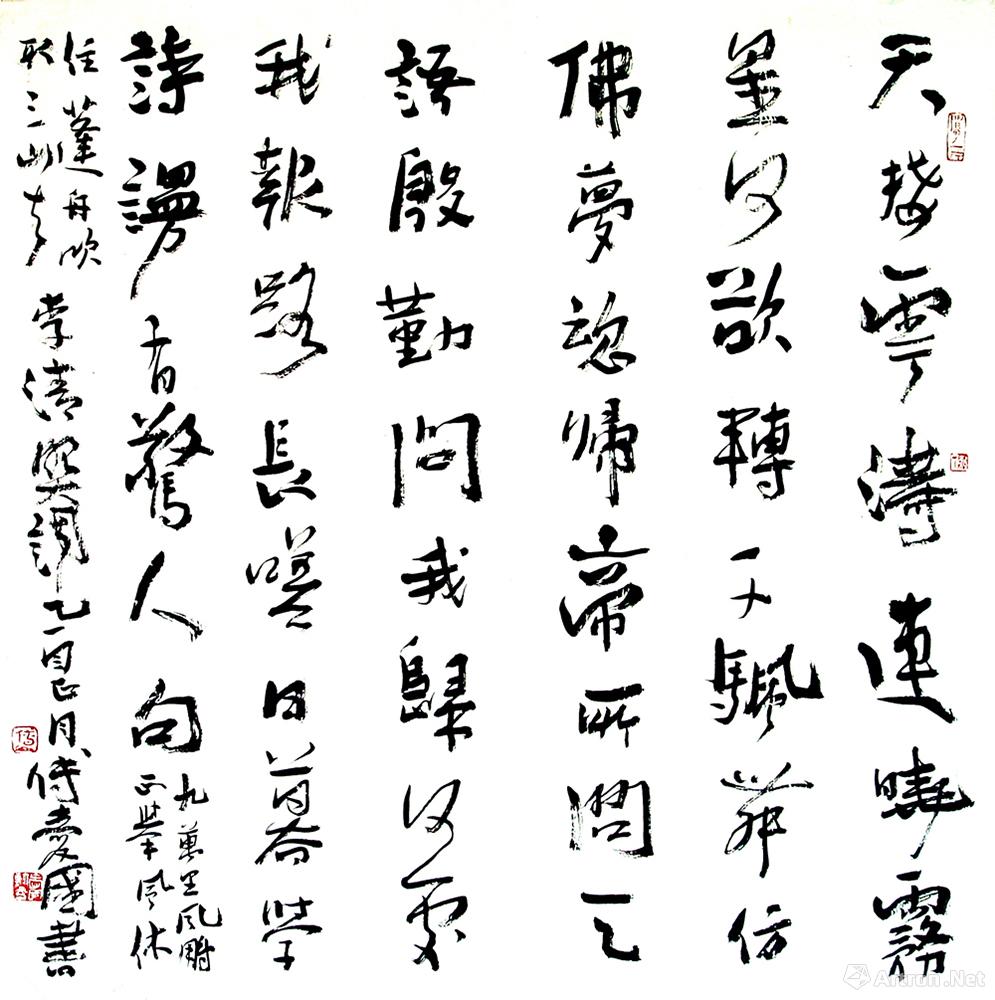 天接雲濤連曉霧
星河欲轉千颿舞仿
佛夢魂帰帝所聞天
語殷勤問我歸何處
我報路長嗟日暮學
詩謾有驚人句
九萬里風鵬
正舉風休
住蓬舟吹
取三山去
李清照詞乙酉正月傅愛國書
Artron.Net